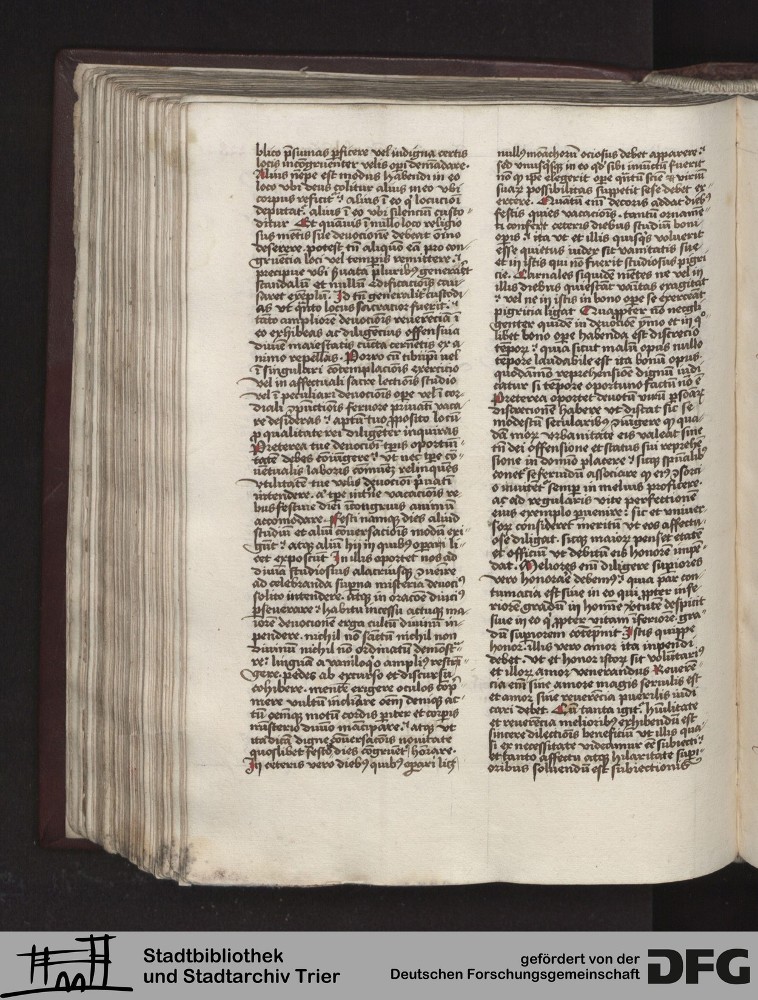 blico p̄sumas p̄ficere vel indigna certis
locis incōgruenter velis opa demādare·
Alius nēpe est modus habendi in eo
loco vbi deus colitur alius in eo vbi
corpus reficit᷑ alius ī eo q̄ locucioī
deputat᷑ alius ī eo vbi silenciū custo
ditur Et quāuis ī nullo loco religio
sus metis sue deuocionē debeat oīno
deserere· potest tn̄ aliquō eā pro con
gruēcia loci vel temp̄is remittere
precipue vbi ẜuata pluribꝰ generat
scandalū et nullū edificacionis cau
saret exēplū· Id tn̄ generalit᷑ custodi
as vt q̄nto locus sacracior fuerit·
tāto ampliorē deuocionis reuerēciā ī
eo exhibeas ac diligēcius offensiua
diuīe maiestatis cūcta cernētis ex a
nimo repellas· Porro cū tibimpi vel
ī singulari cōtemplacionis exercicio
vel in affectuali sacre lectiōis studio
vel ī peculiari deuocionis ope vel ī cor
diali 9punctiōis feruore priuatī vaca
re desideras aptū tuo p̄posito locū
p̱ qualitate rei diligēter inquiras
Preterea tue deuocioī tp̄is oportūi
tatē debes cōiungere vt nec tp̄e cō
uētualis laboris comunē relinquēs
vtilitatē tue velis deuocioī p̄uatī
intendere· a tp̄e inutile vacaciōis re
bus festiue diei incongruis animū
accōmodare· Festi namqꝫ dies aliud
studiū et aliū cōuersacionis modū exi
gūt atqꝫ alium hij in quibꝰ opari li
cet exposcūt In illis oportet nos ad
diuīa studiosius alacriusqꝫ 9uenire
ad celebranda sup̄na misteria deuociꝰ
solito intendere· atqꝫ in oracōe diuciꝰ
p̱seuerare habitu incessu actuqꝫ ma
iorē deuocionē erga cultū diuinū im
pendere· nichil nō sāctū nichil non
diuinū nichil nō ordinatū demōst᷑
re· linguā a vaniloqͦ ampliꝰ restrī
gere· pedes ab excurso et discursu
cohibere· mentē erigere oculos cōp̄
mere vultū inclinare oēni deniqꝫ ac
tū oēmqꝫ motū cordis p̱iter et corp̄is
misterio diuīo mācipare· atqꝫ vt
ita dicā digne cōuersaciōis nouitate
quoslibet festoꝝ dies cōgruēt᷑ honorare·
In ceteris vero diebꝰ quibꝰ opari licꝫ
nullꝰ mōachorū ociosus debet apparere
sed vnusq̄sqꝫ in eo qd̓ sibi iniūctū fuerit
nō qd̓ ip̄e elegerit ope q̄ntū sciē et viriū
suaꝝ possibilitas suppetit sese debet ex
ercere· Quātū enī decoris addat diebꝰ
festis quies vacacionis· tantū ornamē
ti confert ceteris diebus studiū boni
opis ita vt et illis quisqꝫ voluerit
esse quietus iudex sit vanitatis sue
et in istis qui nō fuerit studiosus pigri
cie· Carnales siquidē mētes ne vel in
illis diebus quiescāt vāitas exagitat
vel ne in istis in bono ope se exerceāt
pigricia ligat Quapp̱ter nō neglī
genter quidē in deuocioē ymo et in qͦ
libet bono ope habenda est discrecio
tēporꝭ quia sicut malū opus nullo
tēpore laudabile est ita bonū opus
quodāmō rep̱hēsione dignū iudi
catur si tēpore oportuno factū nō ē
Preterea oportet deuotū virū p̱soaꝝ
discrecionē habere vt discat sic se
modestū seculariƀ 9iungere q̄ qua
dā morꝭ vrbanitate eis valeat sine
tn̄ dei offensione et status sui reprehē
sione in domīo placere sicqꝫ sp̄ualibꝰ
conet᷑ se seruādū associare q̄ eoꝝ 9sorci
o nitatet᷑ semp̱ in melius proficere·
ac ad regularis vite perfectionē
eius exemplo p̱uenire sic et iuuer
soꝝ consideret meritū vt eos affectu
ose diligat· sicqꝫ maiorꝭ penset etatē
et officiū vt debitū eis honorē impē
dat· Meliores enī diligere supiores
vero honorare debemꝰ quia par con
tumacia est siue in eo qui p̄pter infe
riorē gradū in homīe vtutē despicit
siue in eo qͥ p̄pter vitam īferiorē gra
dū supiorem cōtēpnit Istis quippe
honor illis vero amor ita inpendi
debet· vt et honor istoꝝ sit volūtariꝰ
et illoꝝ amor venerandus Reuerē
cia enī sine amore magis seruilis est
et amor sine reuerēcia puerilis iudi
cari debet Cū tanta igit᷑ hūilitate
et reuerēcia melioribꝰ exhibendū est
sincere dilectiōis beneficiū vt illis qua
si ex necessitate videamur eē subiecti
et tanto affectu atqꝫ hilaritate supi
oribus soluendū est subiectionis
Stadtbibliothek
und Stadtarchiv Trier
gefördert von der
Deutschen Forschungsgemeinschaft
DFG